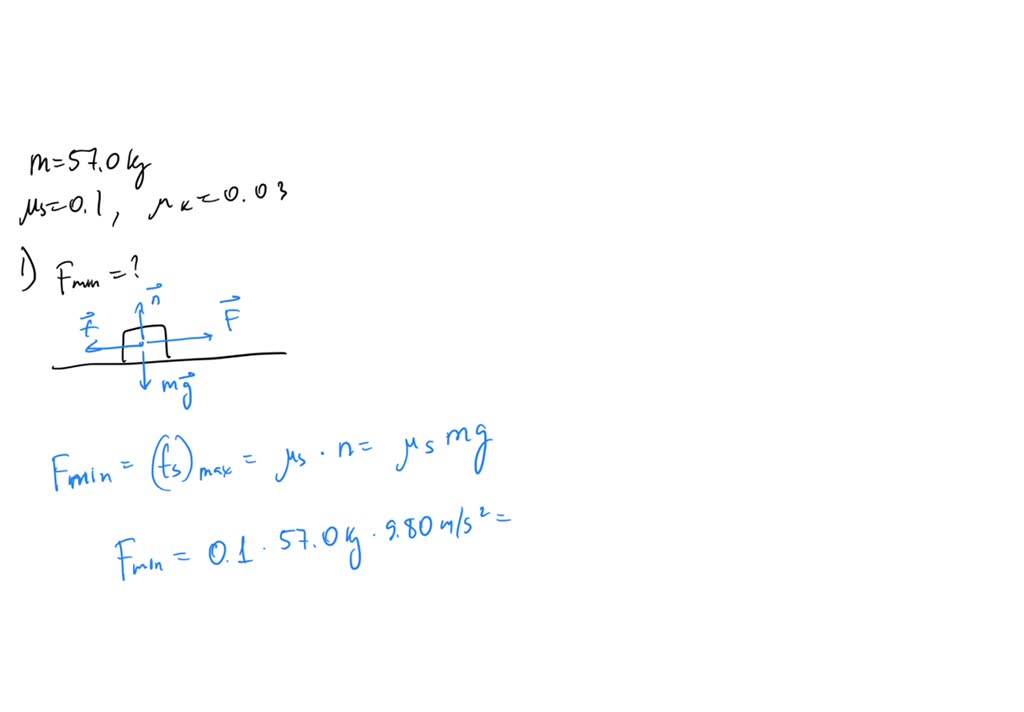 m=57.0 kg
μs=0.1, μk=0.03
1) Fmin = ?
n⃗
f⃗
F⃗
mg⃗
Fmin = (fs)max = μs · n = μs mg
Fmin = 0.1 · 57.0 kg · 9.80 m/s² =